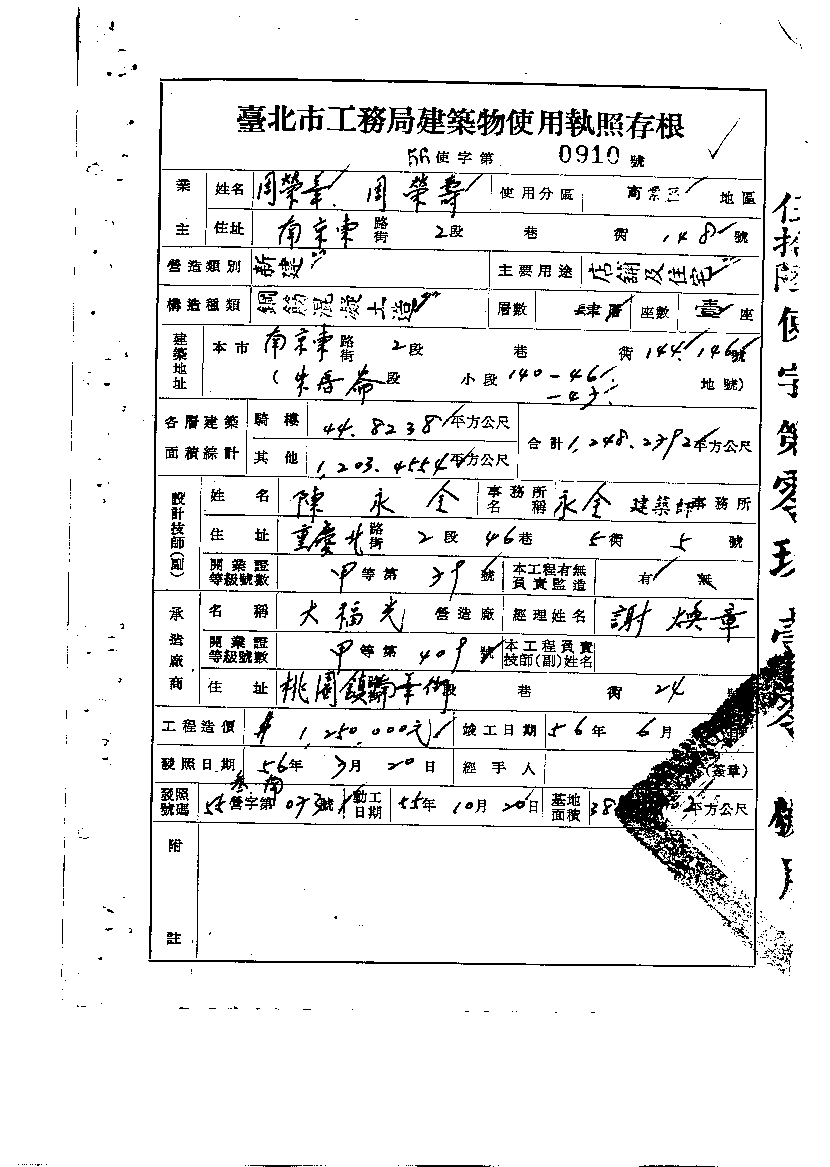 臺北市工務局建築物使用執照存根
56使字第 0910 號
業主 姓名 周榮華 周榮壽 使用分區 商業區 地區
住址 南京東路街 2段 巷 街 148 號
營造類別 新建 主要用途 店鋪及住宅
構造種類 鋼筋混凝土造 層數 肆層 座數 壹座
建築地址 本市 南京東路街 2段 巷 街 144.146號
(朱厝崙段 小段 140-46 地號)
-47
各層建築面積綜計 騎樓 44.8238平方公尺 合計1,248.2392平方公尺
其他 1,203.4554平方公尺
設計技師(副) 姓名 陳永全 事務所名稱 永全建築師事務所
住址 重慶北路街 2段 46巷 5街 5號
開業證等級號數 甲等第 39 號 本工程有無負責監造 有 無
承造廠商 名稱 大福光營造廠 經理姓名 謝煥章
開業證等級號數 甲等第 409 號 本工程負責技師(副)姓名
住址 桃園鎮 段 巷 街 24
工程造價 $1,250,000元 竣工日期 56年 6月
發照日期 56年 3月 20日 經手人 (簽章)
發照號碼 55營字第033號 動工日期 55年 10月 20日 基地面積 38 平方公尺
附註
伍拾陸使字第零玖壹零